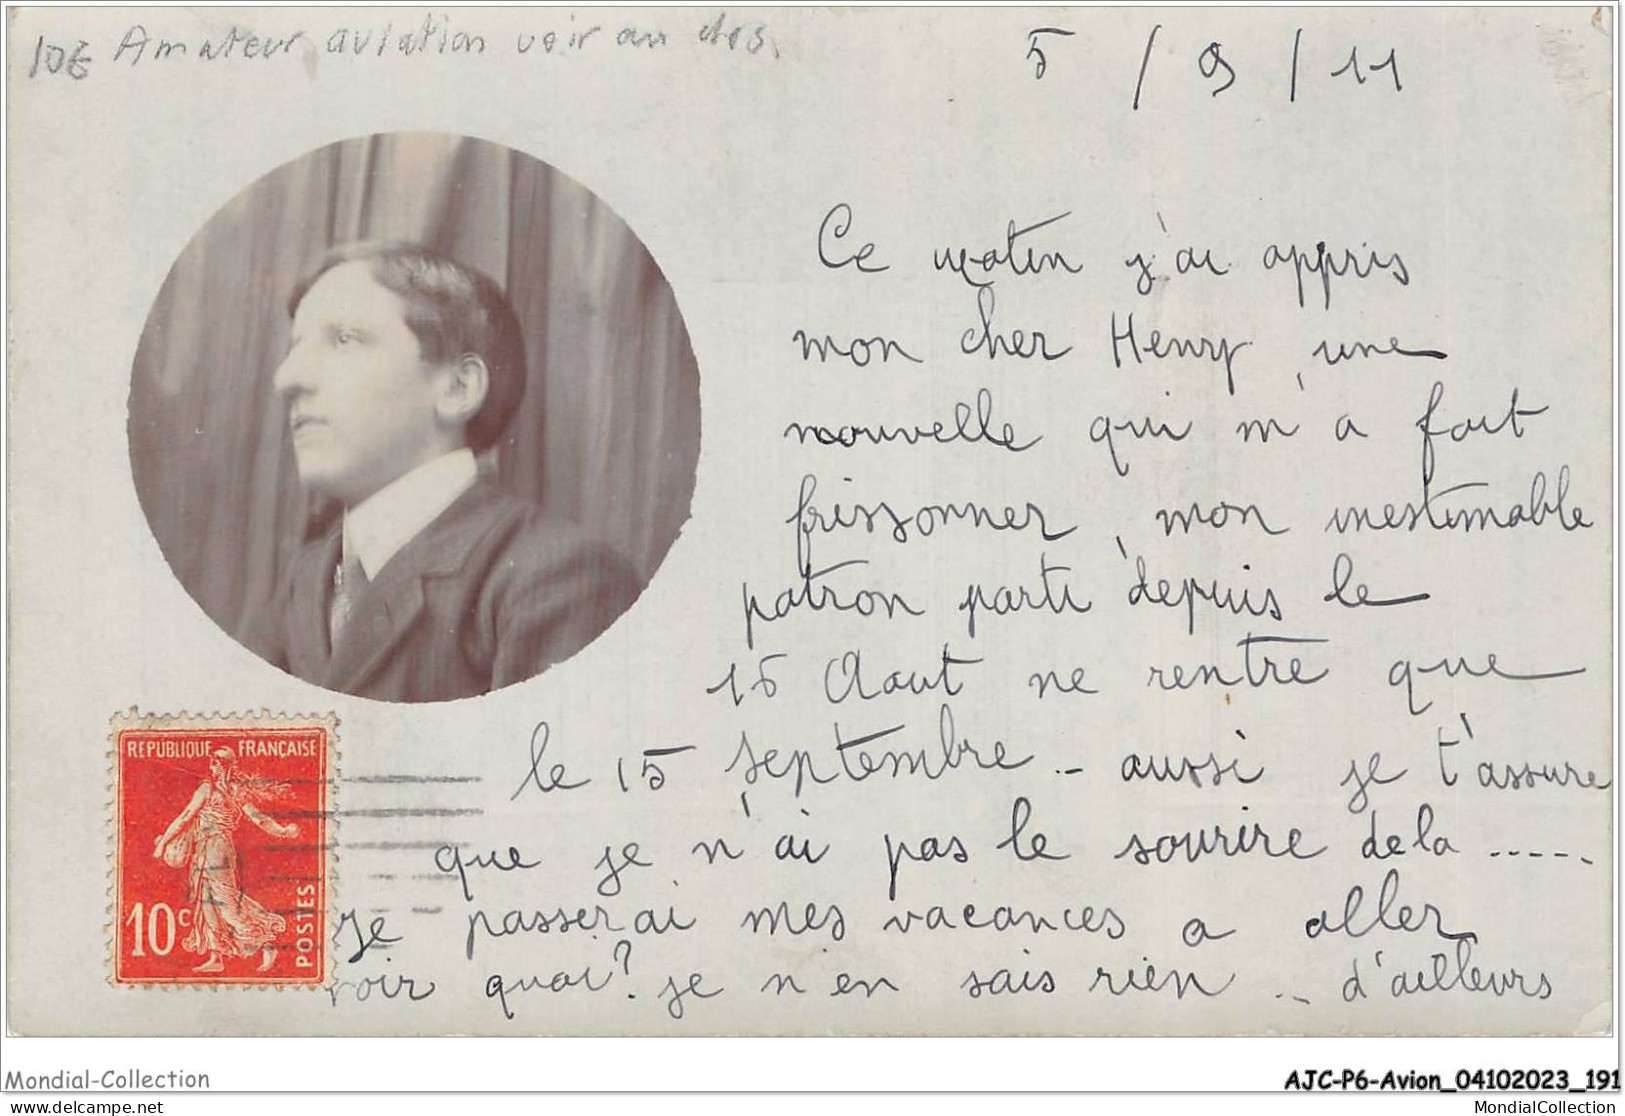 10€ Amateur aviation voir au dos.
5 / 9 / 11
Ce matin j'ai appris
mon cher Henry, une
nouvelle qui m'a fait
frissonner, mon inestimable
patron parti depuis le
15 Aout ne rentre que
le 15 septembre - aussi je t'assure
que je n'ai pas le sourire de la .....
je passerai mes vacances a aller
voir quoi? je n'en sais rien .. d'ailleurs
REPUBLIQUE FRANÇAISE
10c POSTES
Mondial-Collection
AJC-P6-Avion_04102023_191
www.delcampe.net
MondialCollection